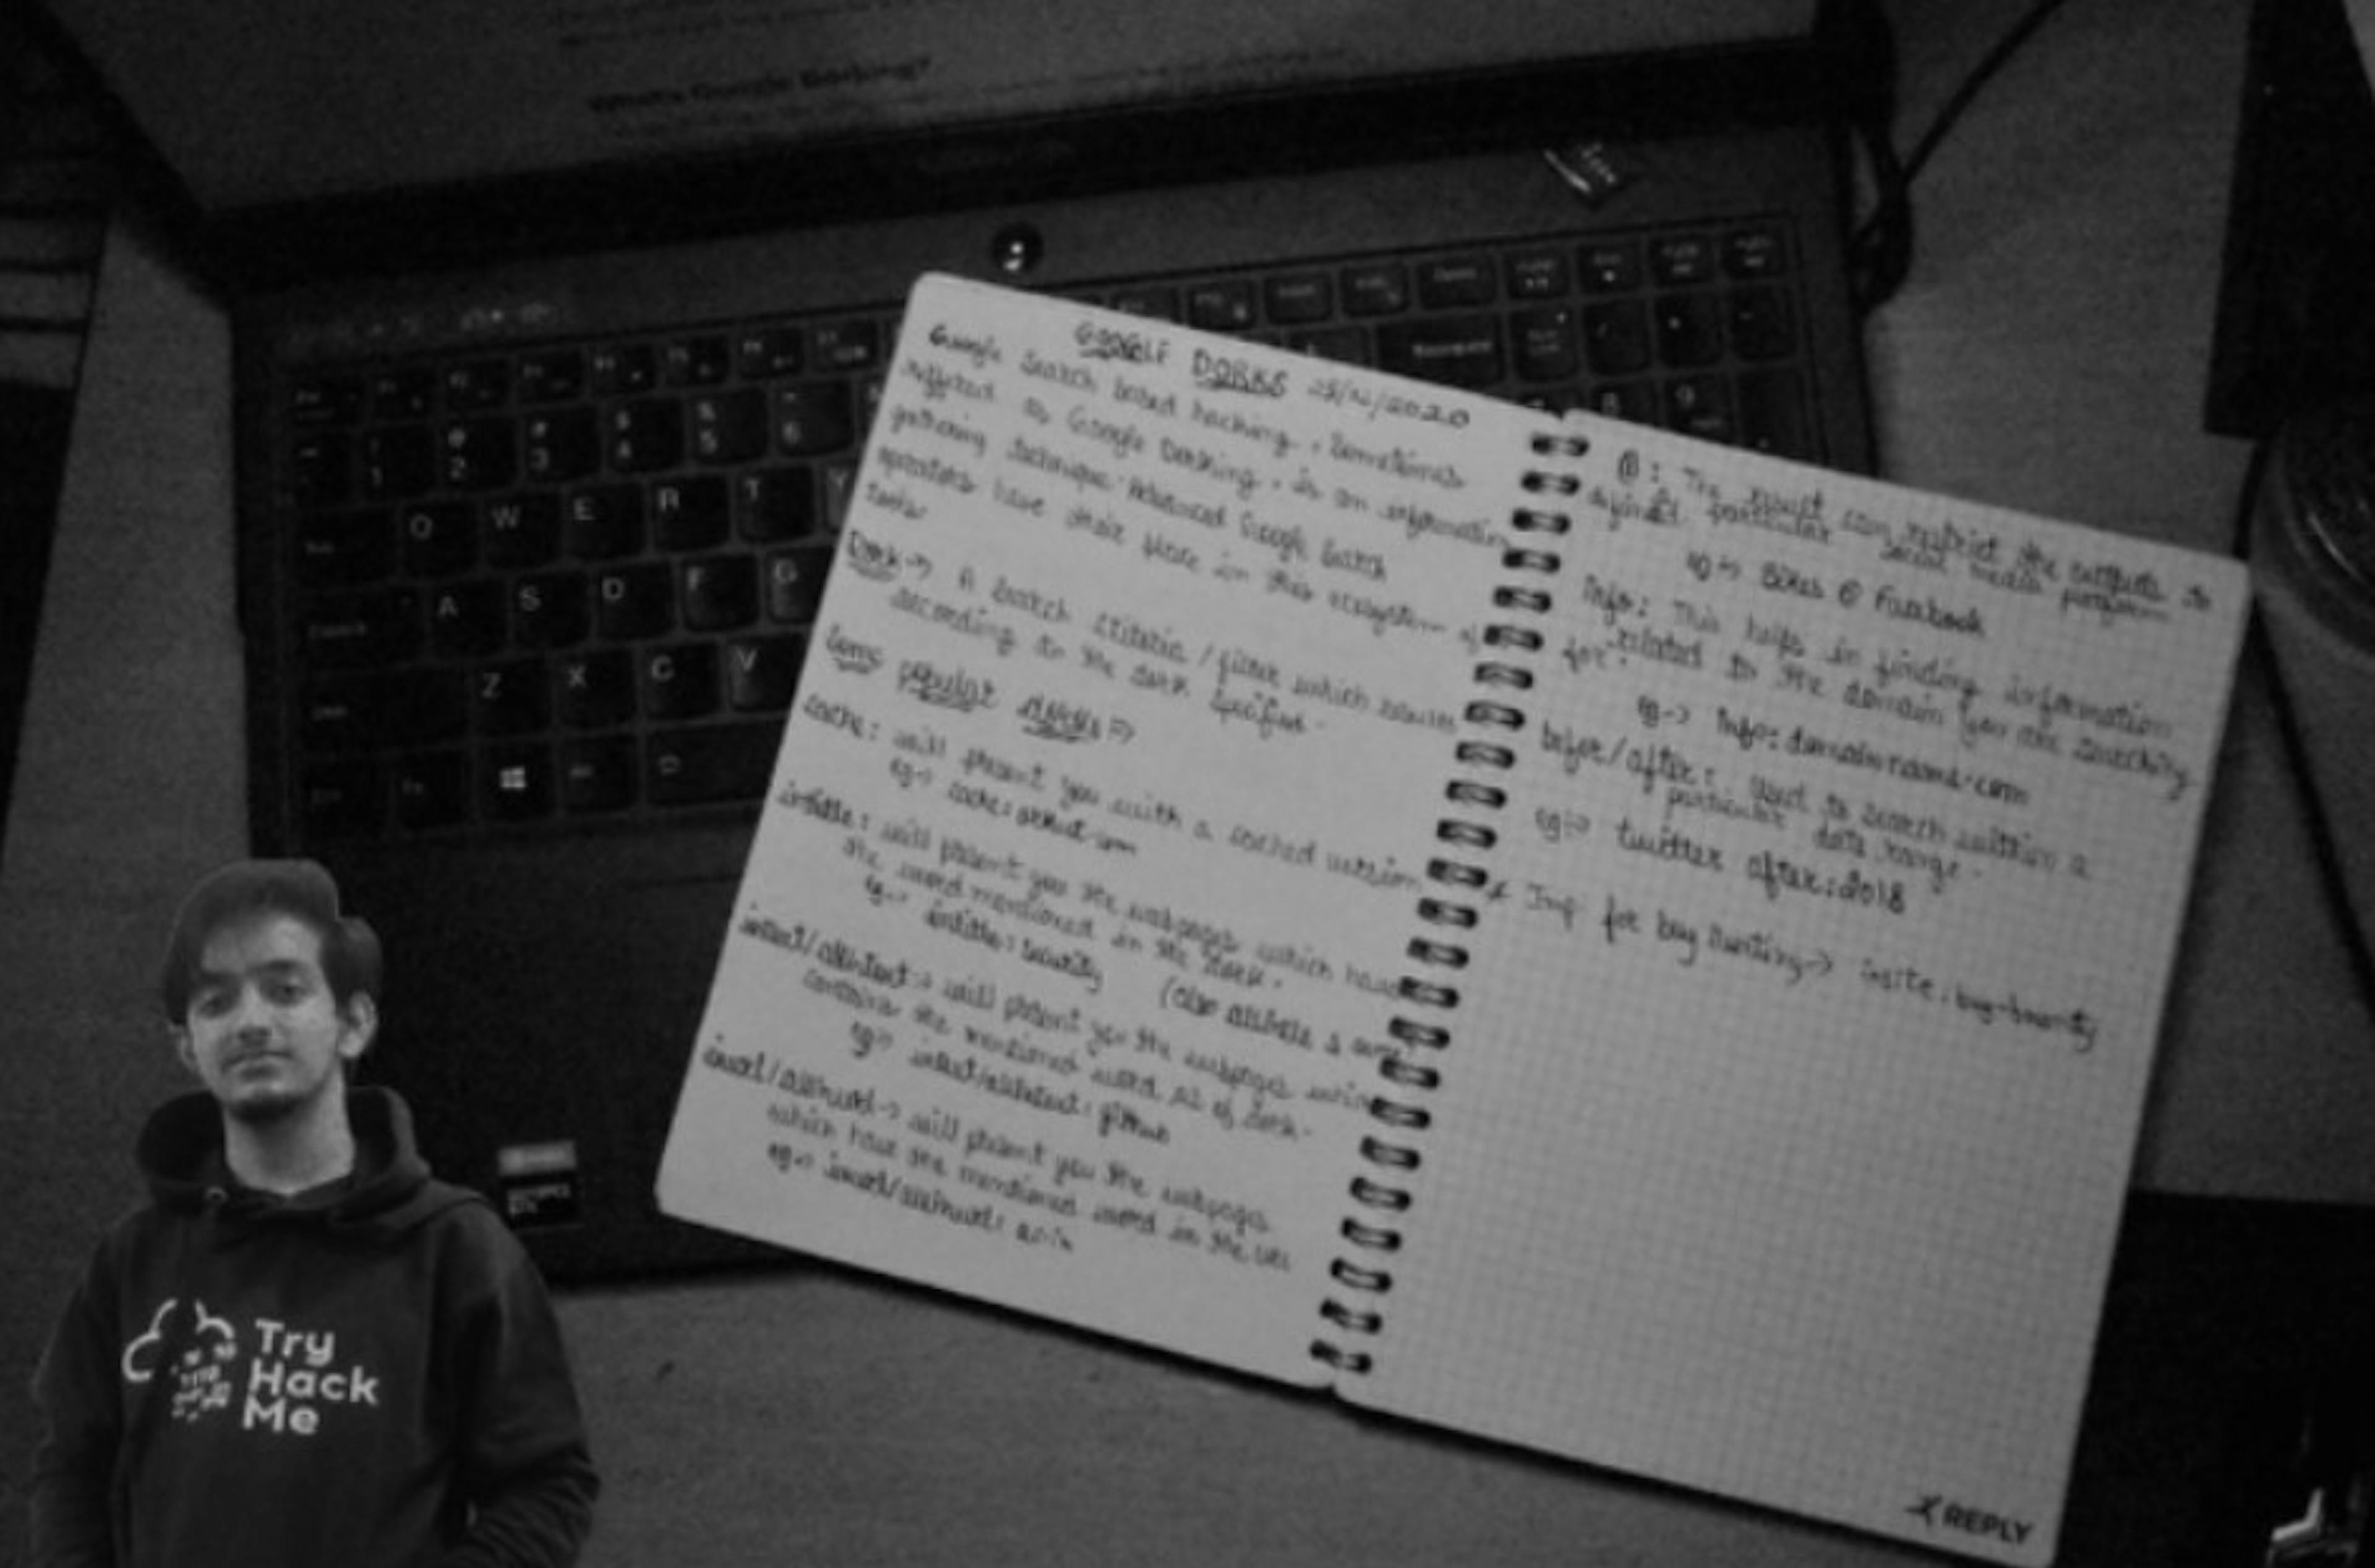 What's Google Dorking?
GOOGLE DORKS 28/12/2020
Google Search based hacking, sometimes
reffered to Google Dorking, is an information
gathering technique. Advanced Google Search
operators have their place in this ecosystem of
tools.
Dork -> A search criteria / filter which results
according to the dork specified.
Some popular dorks =>
cache: will present you with a cached version
eg-> cache:
intitle: will present you the webpages which have
the word mentioned in the dork.
eg-> intitle: security (also allintitle is same
intext/allintext -> will present you the webpages which
contains the mentioned word as of dork.
eg-> intext/allintext: github
inurl/allinurl -> will present you the webpages
which have the mentioned word in the URL
eg-> inurl/allinurl:
@: The result can restrict the outputs to
particular social media platform
eg-> Bikes @ Facebook
Info: This helps in finding information
related to the domain you are searching
for.
eg-> Info: domainname.com
before/after: used to search within a
particular date range.
eg-> twitter after:2018
* Imp for bug hunting-> insite: bug-bounty
REPLY
Q W E R T Y
A S D F G
Z X C V
Try
Hack
Me